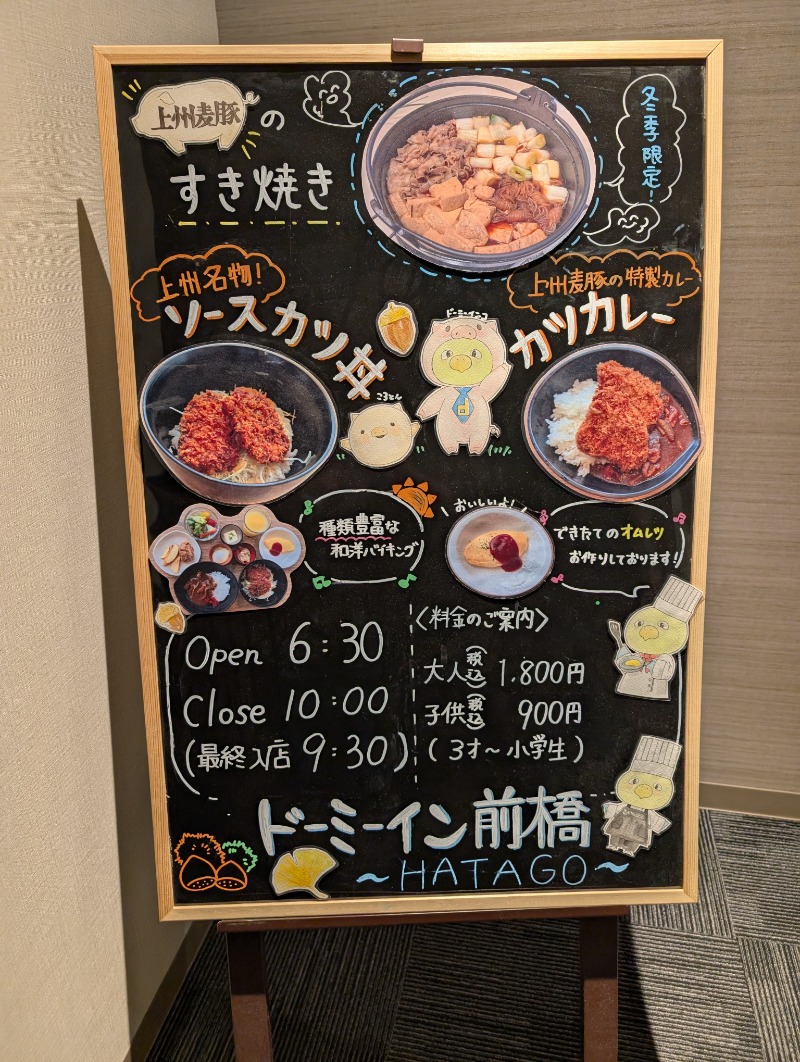 上州麦豚の
すき焼き
冬季限定!
上州名物!
ソースカツ丼
上州麦豚の特製カレー
カツカレー
ドーミーインコ
ころとん
種類豊富な
和洋バイキング
おいしいよ!
できたてのオムレツ
お作りしております!
Open 6:30
Close 10:00
(最終入店 9:30)
〈料金のご案内〉
大人(税込) 1,800円
子供(税込) 900円
(3才〜小学生)
ドーミーイン前橋
〜HATAGO〜